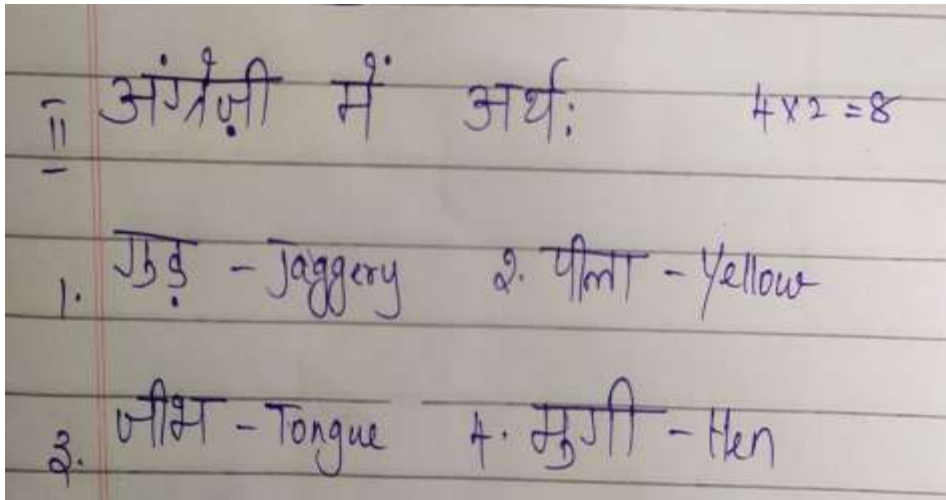 II अंग्रेज़ी में अर्थ: 4 x 2 = 8
1. गुड़ - Jaggery 2. पीला - Yellow
3. जीभ - Tongue 4. मुगी - Hen